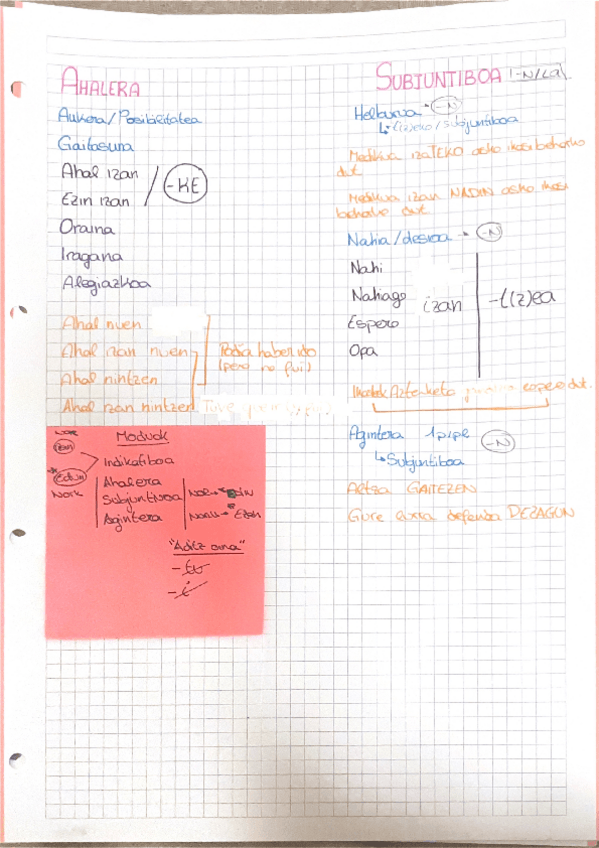 AHALERA
Aukera/Posibilitatea
Gaitasuna
Ahal izan
Ezin izan
-KE
Oraina
Iragana
Alegiazkoa
Ahal nuen
Ahal izan nuen
Ahal nintzen
Ahal izan nintzen
Podía haber ido
(pero no fui)
Tuve
Moduak
NOR
Izan
Edun
NORK
Indikatiboa
Ahalera
Subjuntiboa
Agintera
NOR → EDIN
NORK → EZAN
"Aditz oina"
-tu
-i
SUBJUNTIBOA -N/LA
Helburua → -N
↳ t(z)eko/subjuntiboa
Medikua izaTEKO asko ikasi beharko
dut
Medikua izan NADIN asko ikasi
beharko dut
Nahia/desioa → -N
Nahi
Nahiago
Espero
Opa
izan
-t(z)ea
Ikasleak Azterketa espero dut.
Agintera 1 pl pe -N
↳ Subjuntiboa
Altxa GAITEZEN
Gure lurra defenda DEZAGUN